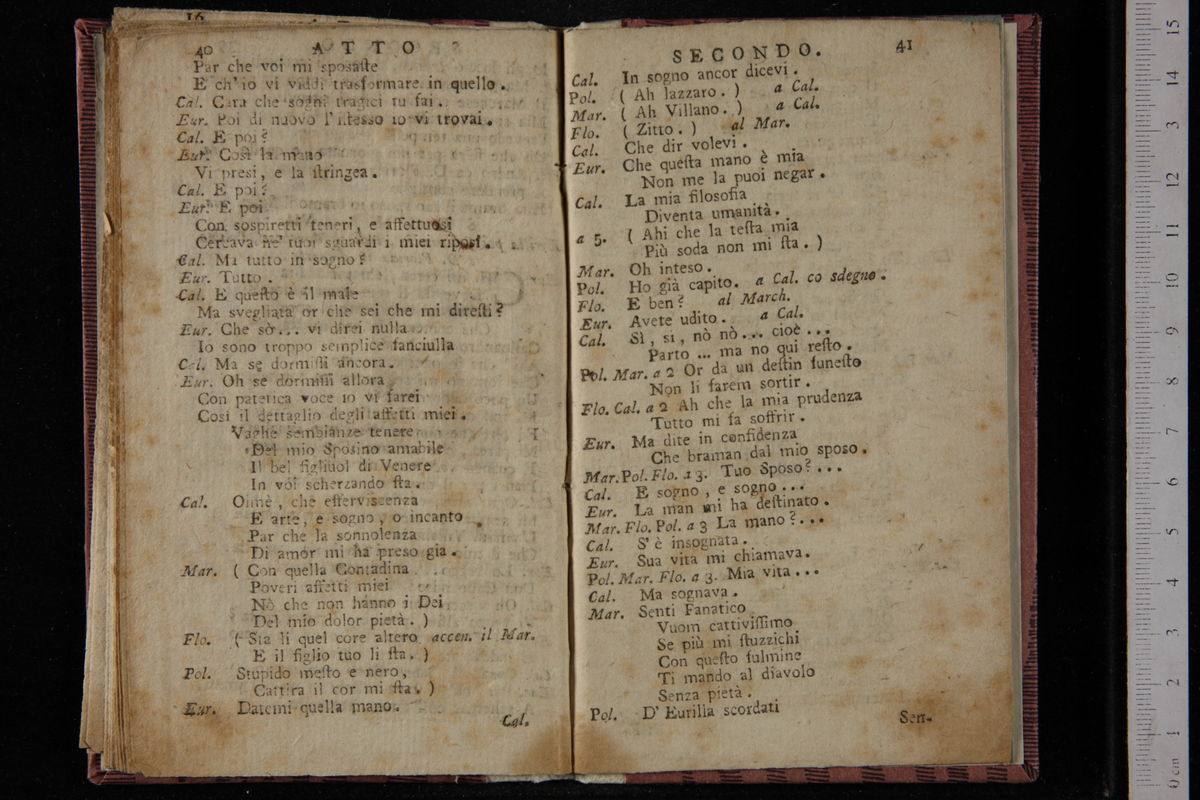 40 ATTO
Par che voi mi sposaſte
E ch' io vi viddi trasformare in quello.
Cal. Cara che sogni tragici tu fai.
Eur. Poi di nuovo l' iſtesso io vi trovai.
Cal. E poi?
Eur. Così la mano
Vi presi, e la ſtringea.
Cal. E poi?
Eur. E poi
Con sospiretti teneri, e affettuosi
Cercava ne' tuoi sguardi i miei riposi.
Cal. Ma tutto in sogno?
Eur. Tutto.
Cal. E queſto è il male
Ma svegliata or che sei che mi direſti?
Eur. Che sò... vi direi nulla
Io sono troppo semplice fanciulla
Cal. Ma se dormiſſi ancora.
Eur. Oh se dormiſſi allora
Con patetica voce io vi farei
Così il dettaglio degli affetti miei.
Vaghe sembianze tenere
Del mio Sposino amabile
Il bel figliuol di Venere
In voi scherzando ſta.
Cal. Oimè, che efferviscenza
E arte, e sogno, o incanto
Par che la sonnolenza
Di amor mi ha preso gia.
Mar. ( Con quella Contadina
Poveri affetti miei
Nò che non hanno i Dei
Del mio dolor pietà. )
Flo. ( Sta li quel core altero accen. il Mar.
E il figlio tuo li ſta. )
Pol. Stupido meſto e nero,
Cattira il cor mi ſta. )
Eur. Datemi quella mano.
Cal.
SECONDO. 41
Cal. In sogno ancor dicevi.
Pol. ( Ah lazzaro. ) a Cal.
Mar. ( Ah Villano. ) a Cal.
Flo. ( Zitto. ) al Mar.
Cal. Che dir volevi.
Eur. Che queſta mano è mia
Non me la puoi negar.
Cal. La mia filosofia
Diventa umanità.
a 5. ( Ahi che la teſta mia
Più soda non mi ſta. )
Mar. Oh inteso.
Pol. Ho già capito. a Cal. co sdegno.
Flo. E ben? al March.
Eur. Avete udito. a Cal.
Cal. Sì, si, nò nò... cioè...
Parto ... ma no qui reſto.
Pol. Mar. a 2 Or da un deſtin funeſto
Non li farem sortir.
Flo. Cal. a 2 Ah che la mia prudenza
Tutto mi fa soffrir.
Eur. Ma dite in confidenza
Che braman dal mio sposo.
Mar. Pol. Flo. a 3. Tuo Sposo?...
Cal. E sogno, e sogno...
Eur. La man mi ha deſtinato.
Mar. Flo. Pol. a 3 La mano?...
Cal. S' è insognata.
Eur. Sua vita mi chiamava.
Pol. Mar. Flo. a 3. Mia vita...
Cal. Ma sognava.
Mar. Senti Fanatico
Vuom cattiviſſimo
Se più mi ſtuzzichi
Con queſto fulmine
Ti mando al diavolo
Senza pietà.
Pol. D' Eurilla scordati
Sen-
15
14
13
12
11
10
9
8
7
6
5
4
3
2
1
0 cm